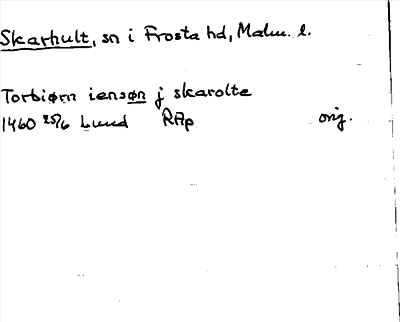 Skarhult, sn i Frosta hd, Malm. l.
Torbiørn iensøn j skarolte
1460 25/6 Lund RAp orig.